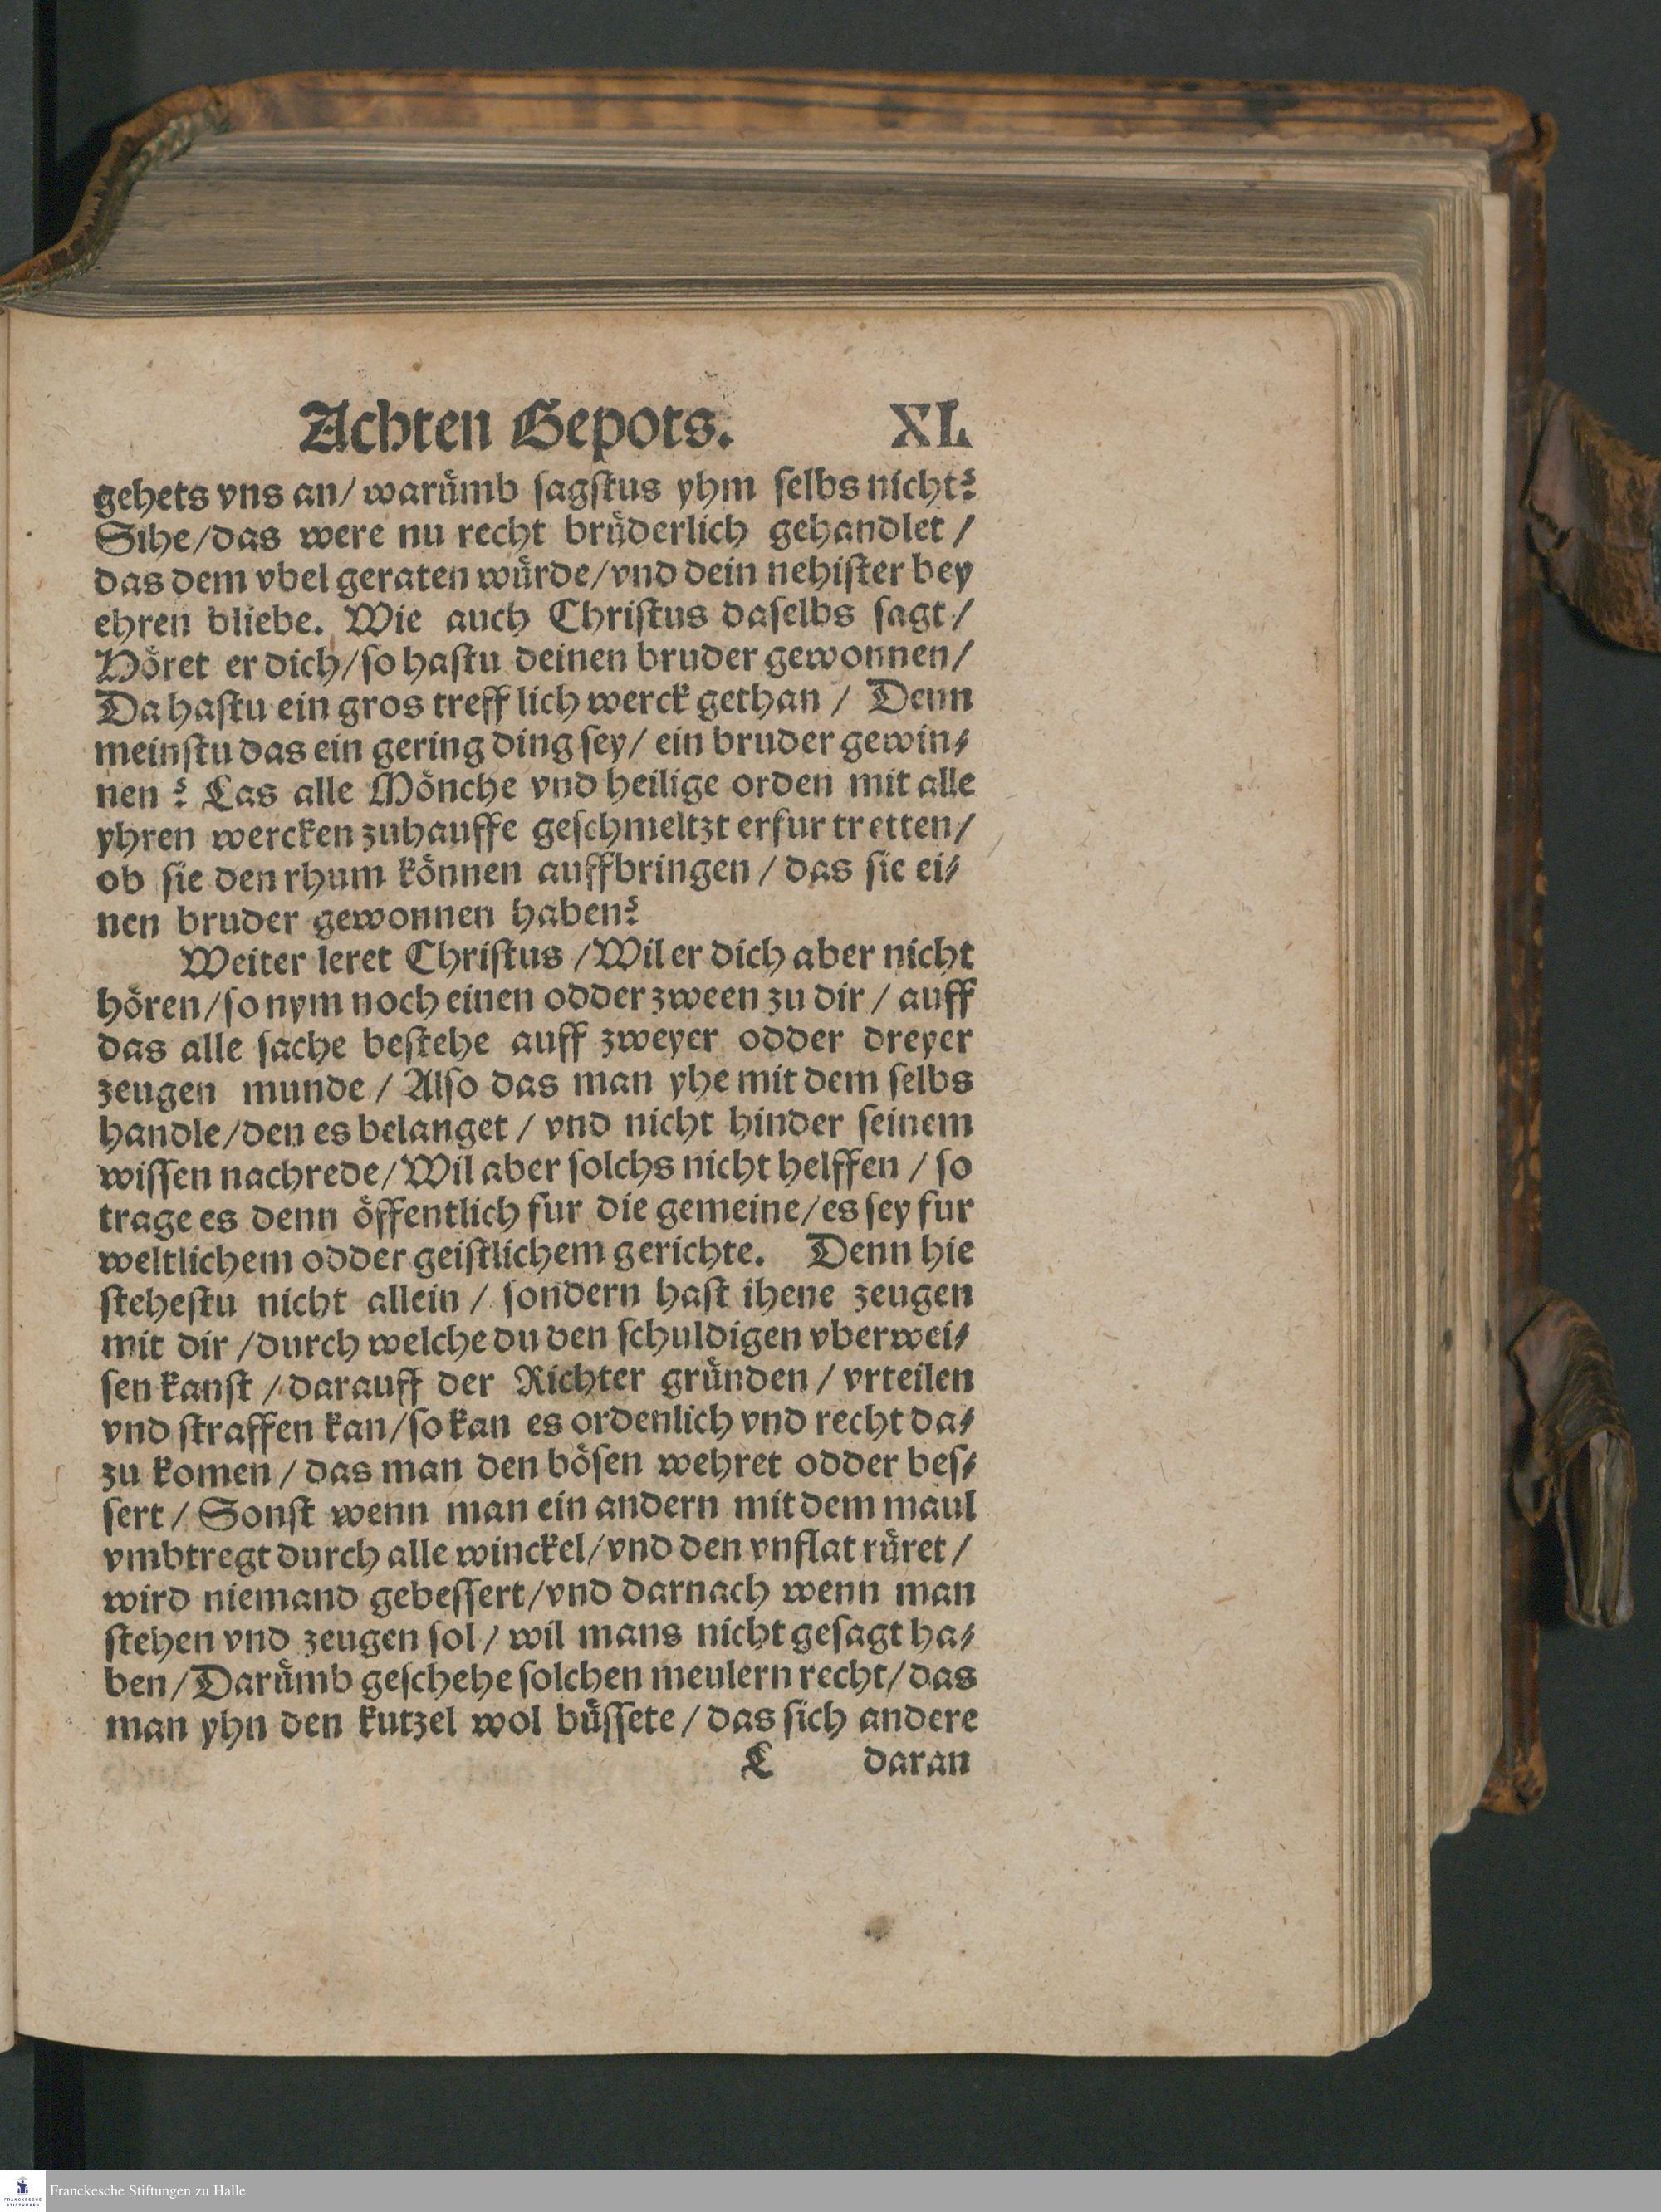 Achten Gepots. XL
gehets vns an/ waruͤmb ſagſtus yhm ſelbs nicht?
Sihe/das were nu recht bruͤderlich gehandlet /
das dem vbel geraten wuͤrde/vnd dein nehiſter bey
ehren bliebe. Wie auch Chriſtus daſelbs ſagt /
Hoͤret er dich/ſo haſtu deinen bruder gewonnen/
Da haſtu ein gros trefflich werck gethan / Denn
meinſtu das ein gering ding ſey/ ein bruder gewin⸗
nen ? Las alle Moͤnche vnd heilige orden mit alle
yhren wercken zuhauffe geſchmeltzt erfur tretten/
ob ſie den rhum koͤnnen auffbringen / das ſie ei⸗
nen bruder gewonnen haben?
Weiter leret Chriſtus /Wil er dich aber nicht
hoͤren/ſo nym noch einen odder zween zu dir / auff
das alle ſache beſtehe auff zweyer odder dreyer
zeugen munde / Alſo das man yhe mit dem ſelbs
handle/den es belanget / vnd nicht hinder ſeinem
wiſſen nachrede/Wil aber ſolchs nicht helffen / ſo
trage es denn oͤffentlich fur die gemeine/es ſey fur
weltlichem odder geiſtlichem gerichte. Denn hie
ſteheſtu nicht allein / ſondern haſt ihene zeugen
mit dir /durch welche du den ſchuldigen vberwei⸗
ſen kanſt /darauff der Richter gruͤnden / vrteilen
vnd ſtraffen kan/ſo kan es ordenlich vnd recht da⸗
zu komen / das man den boͤſen wehret odder beſ⸗
ſert / Sonſt wenn man ein andern mit dem maul
vmbtregt durch alle winckel/vnd den vnflat ruͤret /
wird niemand gebeſſert/vnd darnach wenn man
ſtehen vnd zeugen ſol / wil mans nicht geſagt ha⸗
ben/Daruͤmb geſchehe ſolchen meulern recht/das
man yhn den kutzel wol buͤſſete / das ſich andere
L daran
Franckesche Stiftungen zu Halle
FRANCKESCHE
STIFTUNGEN